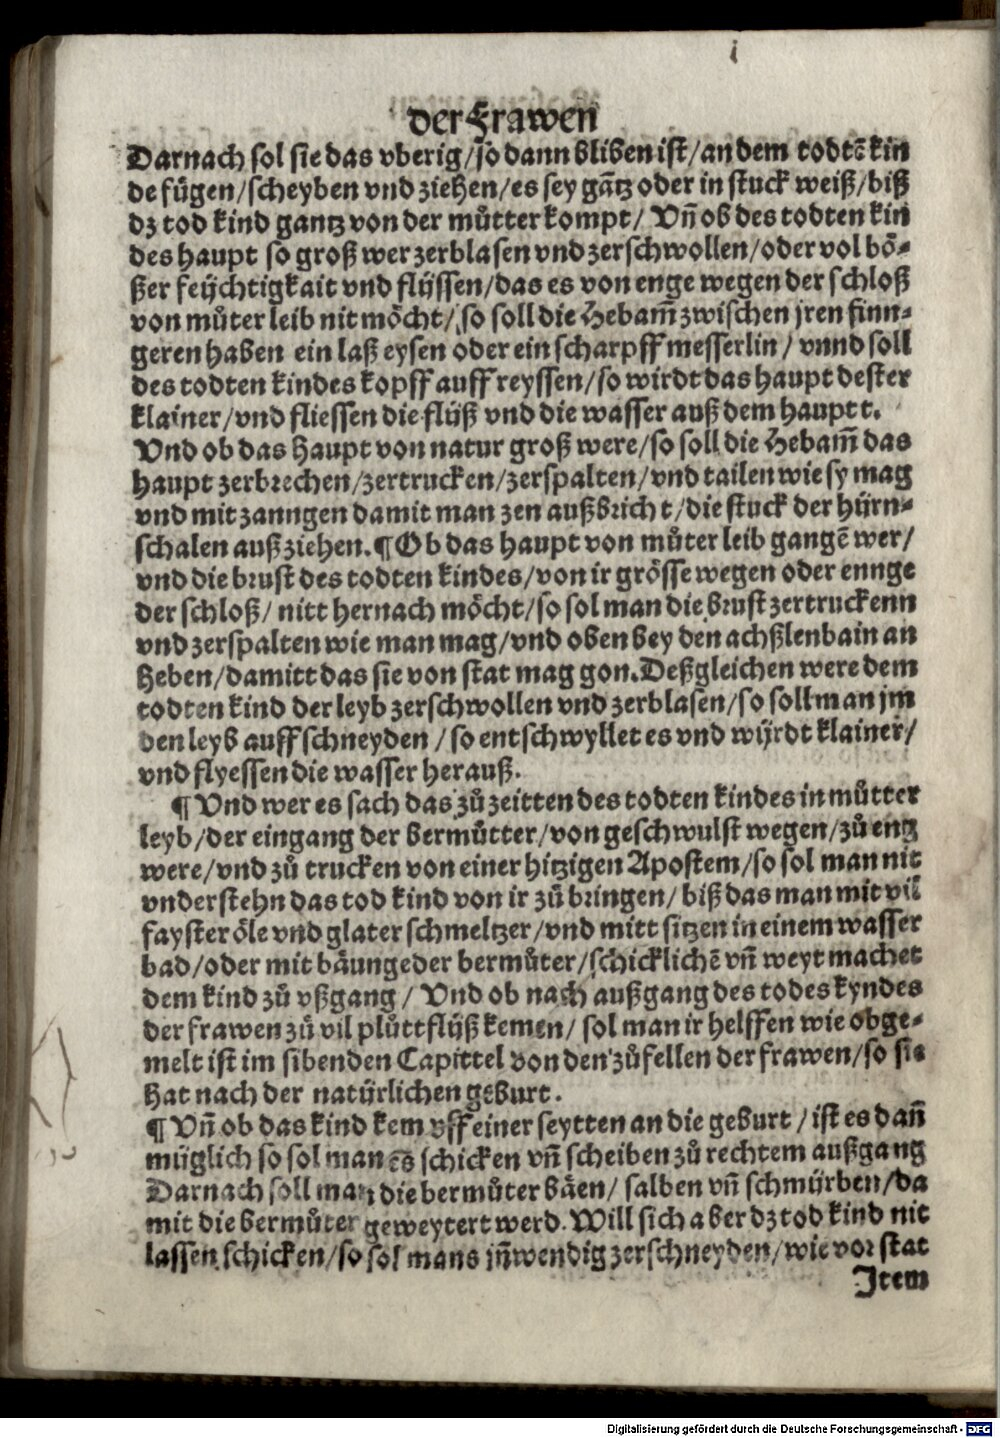 i
der Frawen
Darnach sol sie das vberig/so dann bliben ist/an dem todtē kin
de fügen/scheyben vnd ziehen/es sey gātz oder in stuck weiß/biß
dz tod kind gantz von der můtter kompt/ Vñ ob des todten kin
des haupt so groß wer zerblasen vnd zerschwollen/oder vol bö-
ßer feüchtigkait vnd flüssen/das es von enge wegen der schloß
von můter leib nit möcht/so soll die Hebam̄ zwischen jren finn-
geren haben ein laß eysen oder ein scharpff messerlin/ vnnd soll
des todten kindes kopff auff reyssen/so wirdt das haupt dester
klainer/vnd fliessen die flüß vnd die wasser auß dem hauptt.
Vnd ob das haupt von natur groß were/so soll die Hebam̄ das
haupt zerbrechen/zertrucken/zerspalten/vnd tailen wie sy mag
vnd mit zanngen damit man zen außbricht/die stuck der hürn-
schalen auß ziehen. ¶ Ob das haupt von můter leib gangē wer/
vnd die brust des todten kindes/von ir grösse wegen oder ennge
der schloß/ nitt hernach möcht/so sol man die brust zertruckenn
vnd zerspalten wie man mag/vnd oben bey den achßlenbain an
heben/damitt das sie von stat mag gon. Deßgleichen were dem
todten kind der leyb zerschwollen vnd zerblasen/so soll man jm
den leyb auff schneyden /so entschwyllet es vnd würdt klainer/
vnd flyessen die wasser herauß.
¶ Vnd wer es sach das zů zeitten des todten kindes in můtter
leyb/der eingang der bermůtter/von geschwulst wegen/zů eng
were/vnd zů trucken von einer hitzigen Apostem/so sol man nit
vnderstehn das tod kind von ir zů bringen/ biß das man mit vil
fayster öle vnd glater schmeltzer/vnd mitt sitzen in einem wasser
bad/oder mit bäunge der bermůter/schicklichē vñ weyt machet
dem kind zů vßgang / Vnd ob nach außgang des todes kyndes
der frawen zů vil plůttflüß kemen/ sol man ir helffen wie obge-
melt ist im sibenden Capittel von den zůfellen der frawen/so sie
hat nach der natürlichen geburt.
¶ Vñ ob das kind kem vff einer seytten an die geburt / ist es dañ
müglich so sol man es schicken vñ scheiben zů rechtem außgang
Darnach soll man die bermůter bäen/ salben vñ schmürben/da
mit die bermůter geweytert werd. Will sich aber dz tod kind nit
lassen schicken/so sol mans jñwendig zerschneyden/wie vor stat
Item
Digitalisierung gefördert durch die Deutsche Forschungsgemeinschaft - DFG